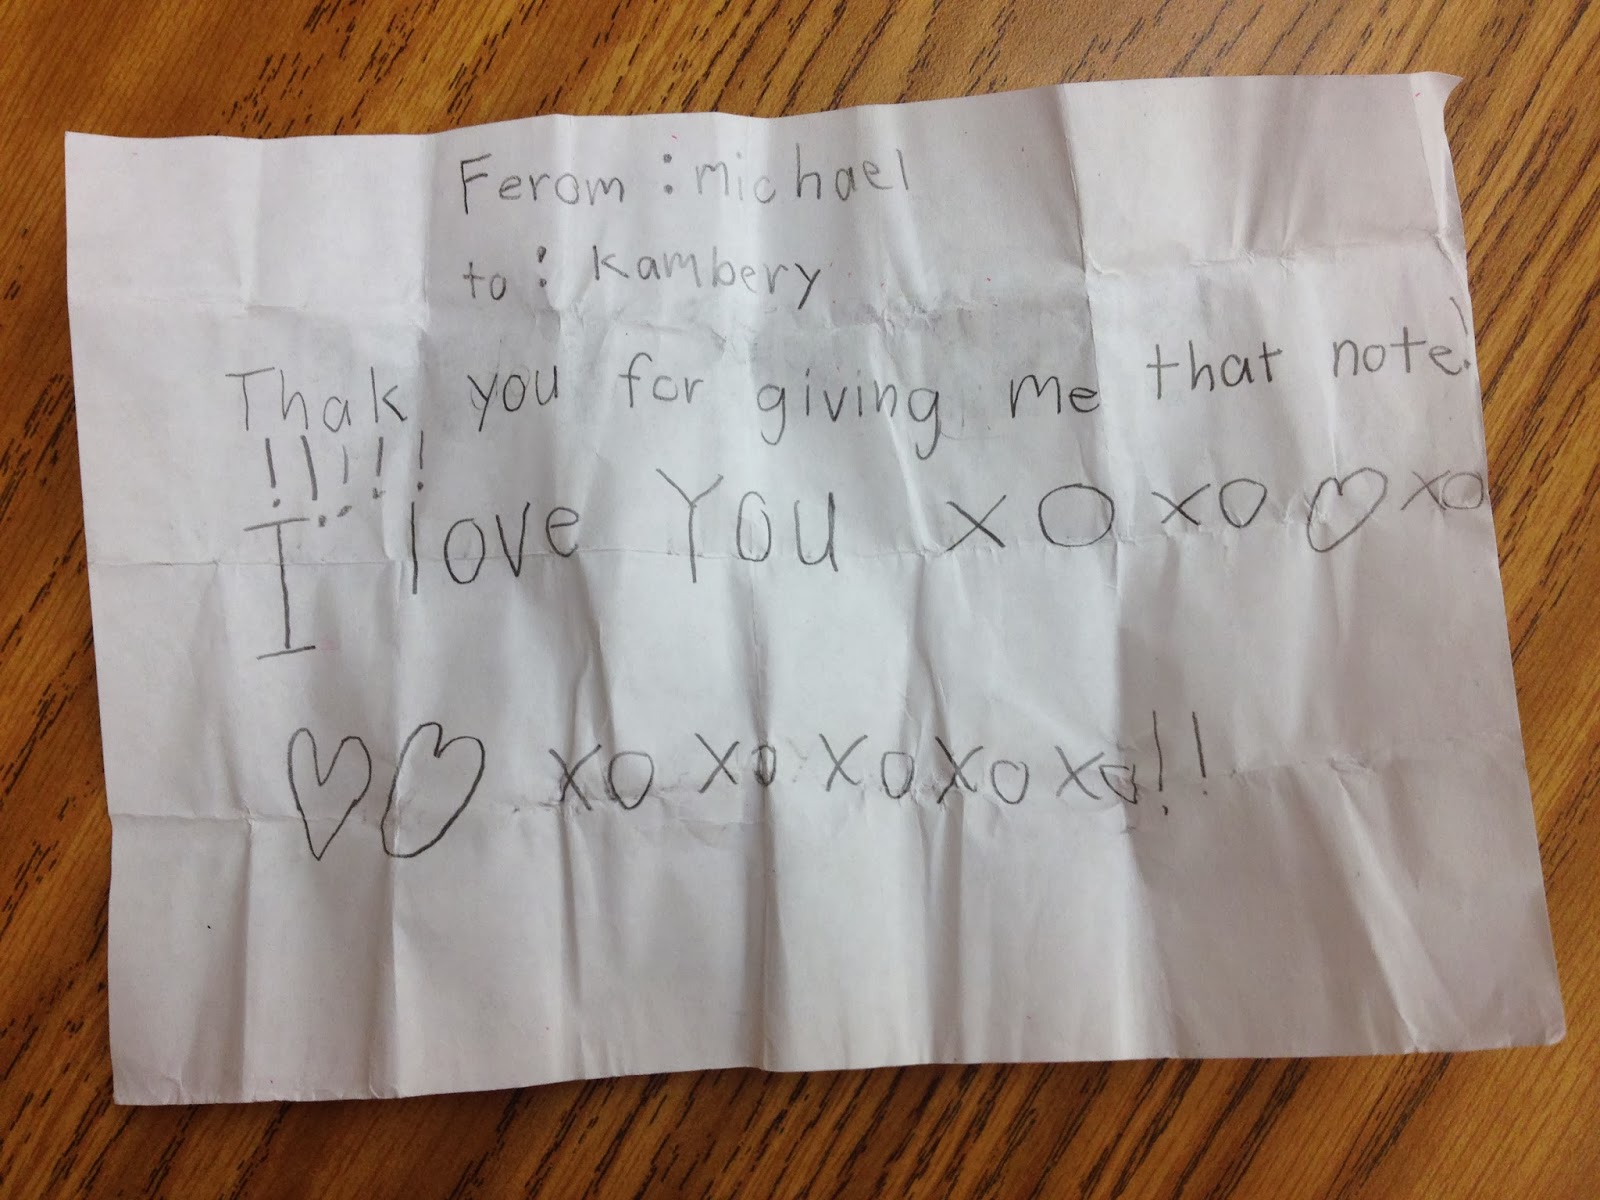 Ferom : michael
to : kambery
Thak you for giving me that note!
!!!!!
I love You xo xo ♡ xo
♡♡ xo xo xo xo xo!!